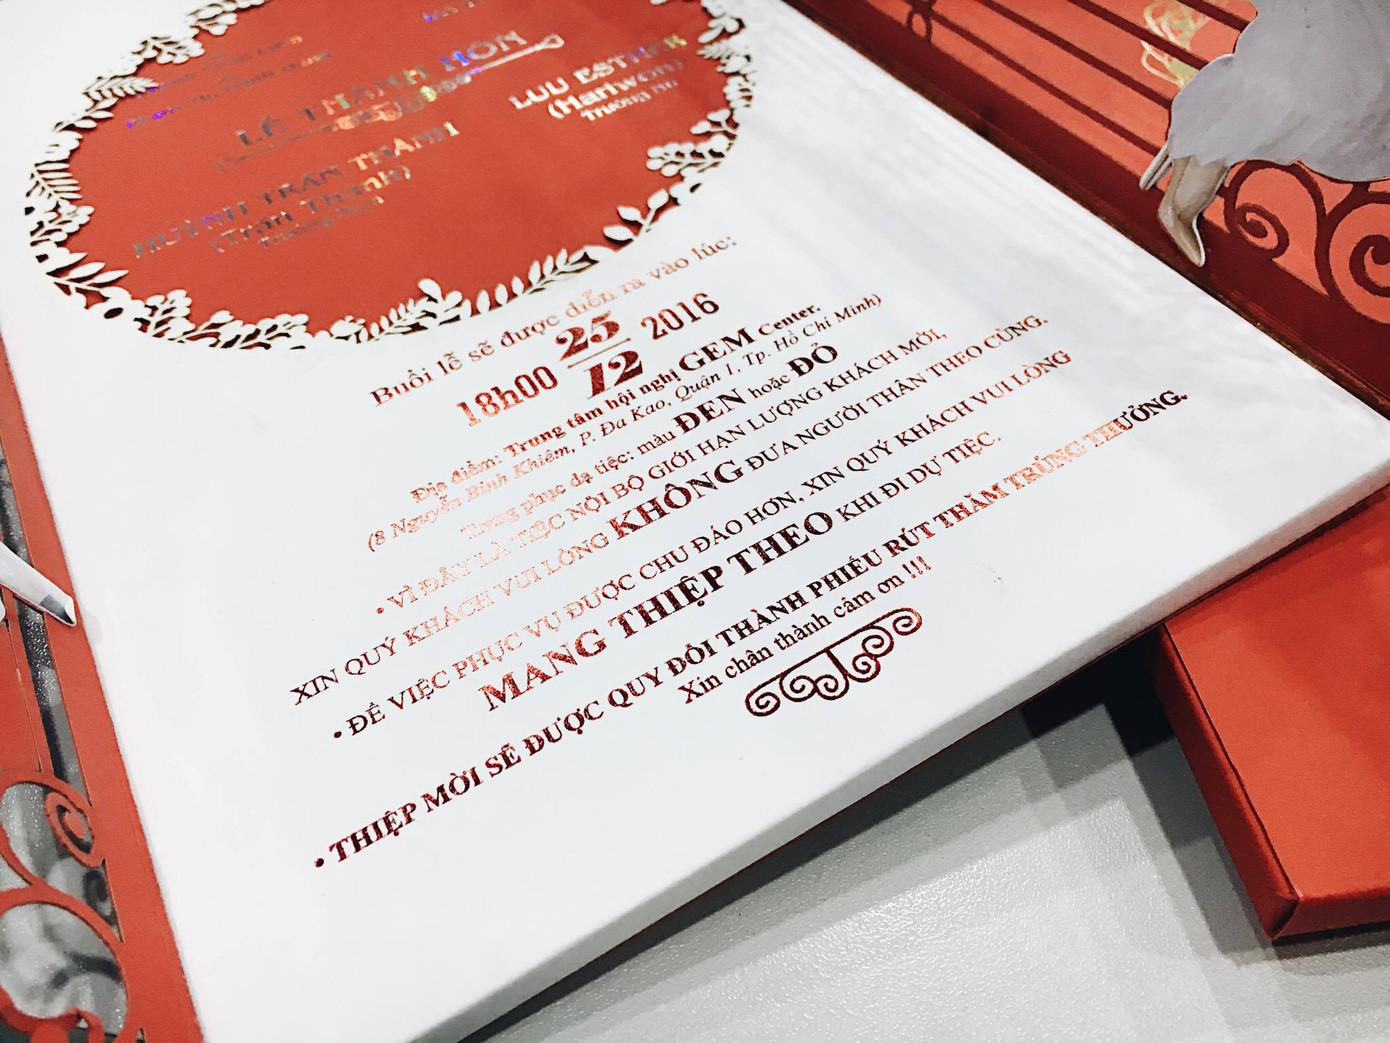 LỄ THÀNH HÔN
HUỲNH TRẤN THÀNH
(Trấn Thành)
LUU ESTHER
(Hariwon)
Trưởng Nữ
Buổi lễ sẽ được diễn ra vào lúc:
18h00 25/12 2016
Địa điểm: Trung tâm hội nghị GEM Center.
(8 Nguyễn Bỉnh Khiêm, P. Đa Kao, Quận 1, Tp. Hồ Chí Minh)
Trang phục dạ tiệc: màu ĐEN hoặc ĐỎ
• VÌ ĐÂY LÀ TIỆC NỘI BỘ GIỚI HẠN LƯỢNG KHÁCH MỜI,
XIN QUÝ KHÁCH VUI LÒNG KHÔNG ĐƯA NGƯỜI THÂN THEO CÙNG.
• ĐỂ VIỆC PHỤC VỤ ĐƯỢC CHU ĐÁO HƠN, XIN QUÝ KHÁCH VUI LÒNG
MANG THIỆP THEO KHI ĐI DỰ TIỆC.
• THIỆP MỜI SẼ ĐƯỢC QUY ĐỔI THÀNH PHIẾU RÚT THĂM TRÚNG THƯỞNG.
Xin chân thành cảm ơn !!!